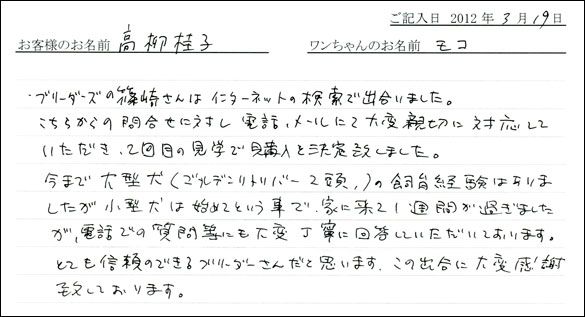 ご記入日 2012 年 3 月 19 日
お客様のお名前 高柳桂子 ワンちゃんのお名前 モコ
・ブリーダーズの篠崎さんはインターネットの検索で出合いました。
こちらからの問合せに対し電話、メールにて大変親切に対応して
いただき、2回目の見学で購入と決定致しました。
今まで大型犬(ゴールデンリトリバー2頭、)の飼育経験はありま
したが小型犬は始めてという事で、家に来て1週間が過ぎました
が、電話での質問等にも大変丁寧に回答していただいております。
とても信頼のできるブリーダーさんだと思います。この出合に大変感謝
致しております。